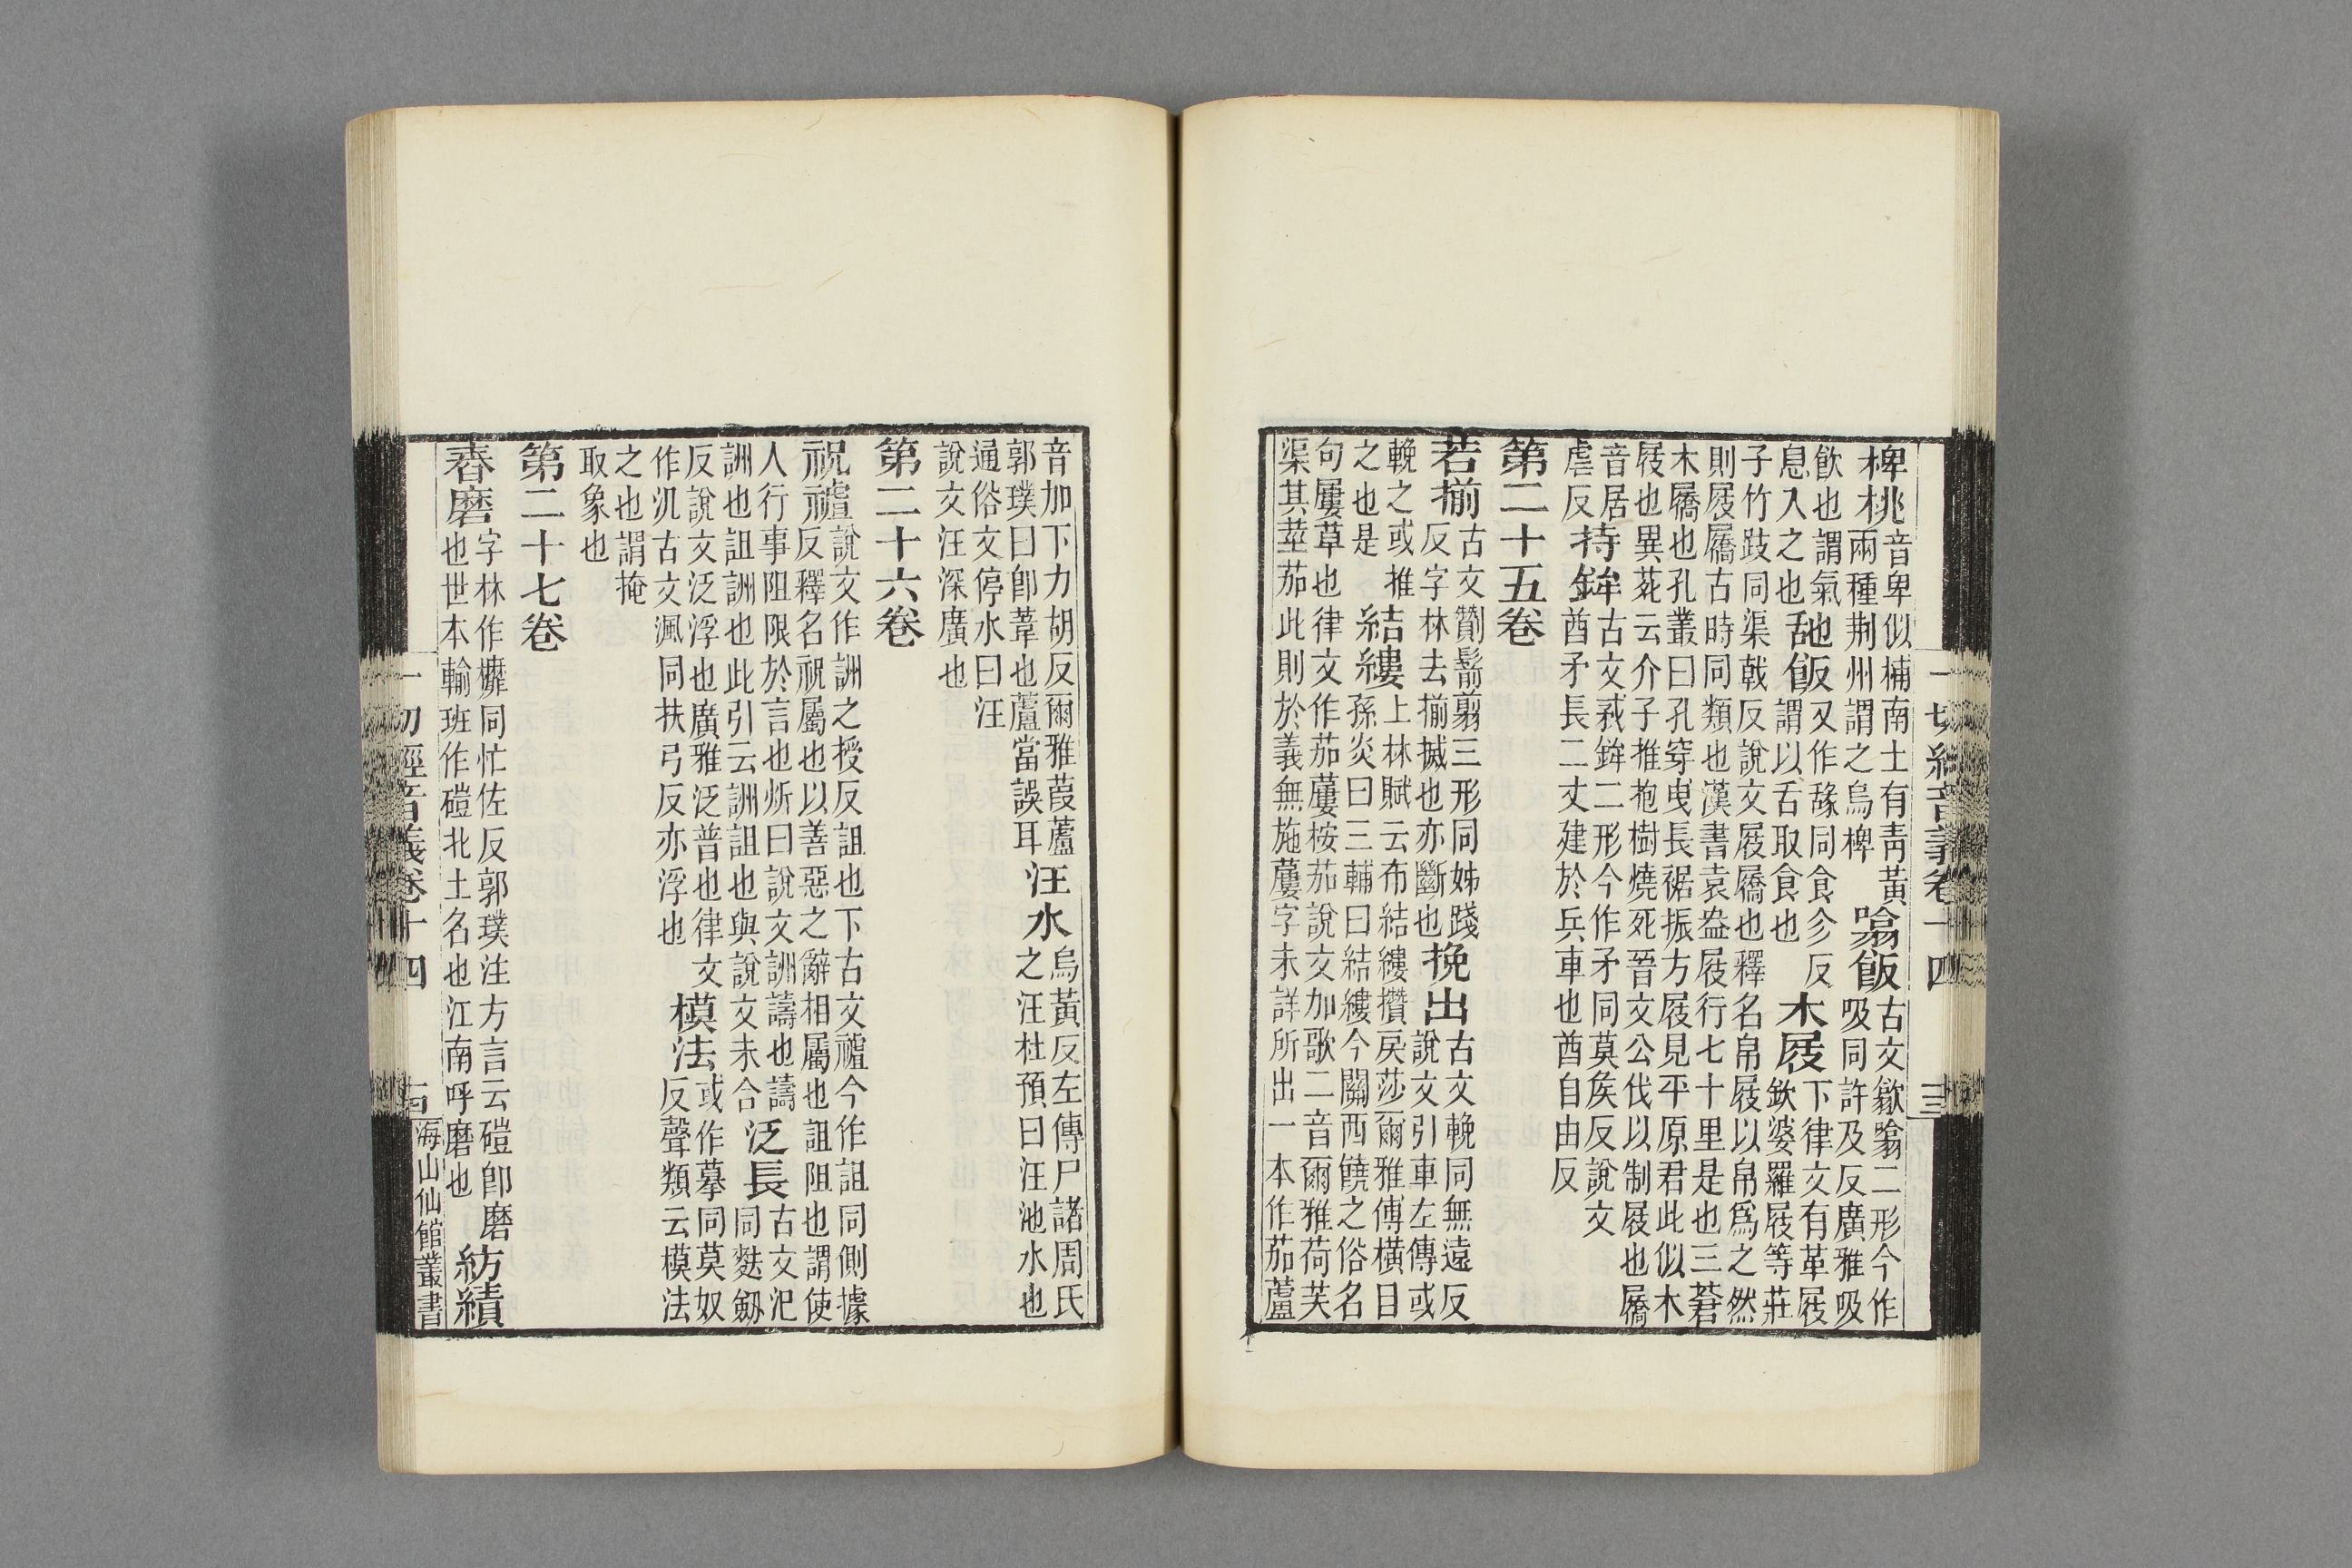 椑桃音卑似柿南土有青黃
兩種荆州謂之烏椑
噏飯古文歙噏二形今作
吸同許及反廣雅吸
飲也謂氣
息入之也
舓飯又作䑛同食尒反
謂以舌取食也
木屐下律文有革屐
欽婆羅屐等莊
子竹跂同渠戟反說文屐屩也釋名帛屐以帛爲之然
則屐屩古時同類也漢書袁盎屐行七十里是也三蒼
木屩也孔叢曰孔穿曳長裾振方屐見平原君此似木
屐也異菀云介子推抱樹燒死晉文公伐以制屐也屩
音居
虐反
持鉾古文䂎鉾二形今作矛同莫侯反說文
酋矛長二丈建於兵車也酋自由反
第二十五卷
若揃古文劗鬋翦三形同姊踐
反字林去揃搣也亦斷也
挽出古文輓同無遠反
說文引車左傳或
輓之或推
之也是
結縷上林賦云布結縷攢戾莎爾雅傳橫目
孫炎曰三輔曰結縷今關西饒之俗名
句屨草也律文作茄蔞桉茄說文加歌二音爾雅荷芙
渠其莖茄此則於義無施蔞字未詳所出一本作茄蘆
一切經音義卷十四
十三
音加下力胡反爾雅葭蘆
郭璞曰卽葦也蘆當誤耳
汪水烏黃反左傳尸諸周氏
之汪杜預曰汪池水也
通俗文停水曰汪
說文汪深廣也
第二十六卷
祝禮說文作詶之授反詛也下古文禮今作詛同側據
反釋名祝屬也以善惡之辭相屬也詛阻也謂使
人行事阻限於言也炘曰說文詶譸也譸
詶也詛詶也此引云詶詛也與說文未合
泛長古文氾
同麩劒
反說文泛浮也廣雅泛普也律文
作汎古文渢同扶弓反亦浮也
模法或作摹同莫奴
反聲類云模法
之也謂掩
取象也
第二十七卷
舂磨字林作䃺同忙佐反郭璞注方言云磑卽磨
也世本輸班作磑北土名也江南呼磨也
紡績
一切經音義卷十四
十四
海山仙館叢書